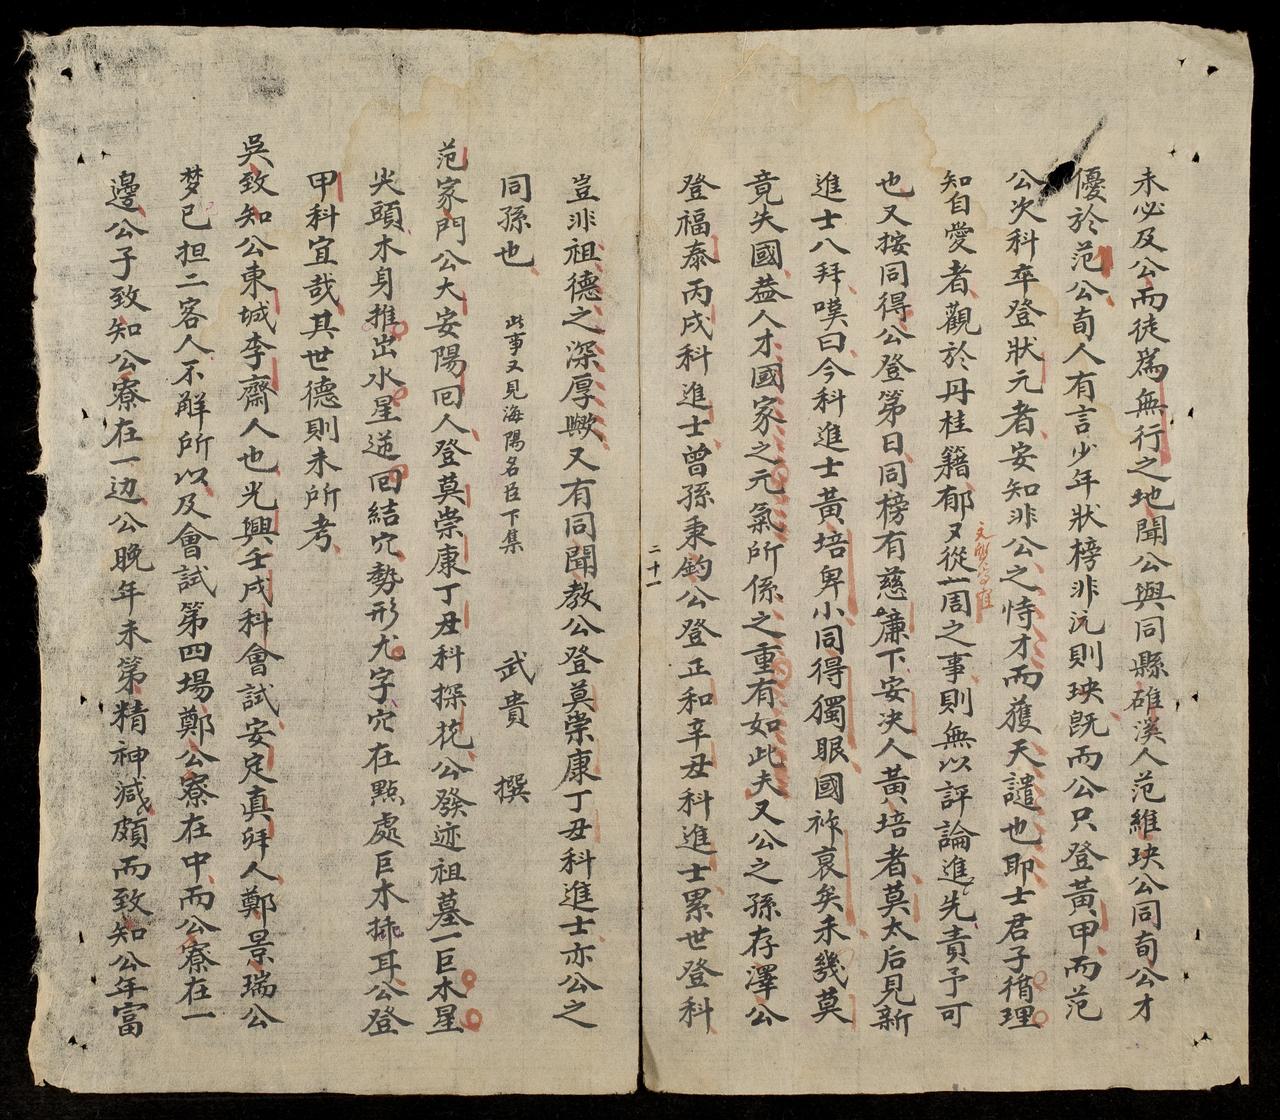 未必及公而徒爲無行之地聞公與同縣碓溪人范維玦公同旬公才
優於范公旬人有言少年狀榜非沆則玦旣而公只登黃甲而范
公次科卒登狀元者安知非公之恃才而獲天譴也即士君子循理
知自愛者觀於丹桂籍郁又從周之事則無以評論進先責予可
也又按同得公登第日同榜有慈廉下安决人黃培者莫太后見新
進士八拜嘆曰今科進士黃培卑小同得獨眼國祚哀矣未幾莫
竟失國益人才國家之元氣所係之重有如此夫又公之孫存澤公
登福泰丙戌科進士曾孫秉鈞公登正和辛丑科進士累世登科
二十一
豈非祖德之深厚歟又有同聞教公登莫崇康丁丑科進士亦公之
同孫也 此事又見海陽名臣下集 武貴 撰
范家門公大安陽回人登莫崇康丁丑科探花公發迹祖墓一巨木星
尖頭木身推出水星逆回結穴勢形尤字穴在點處巨木揷耳公登
甲科宜哉其世德則未所考
吳致知公東城李齋人也光興壬戌科會試安定真拜人鄭景瑞公
梦已担二客人不解所以及會試第四場鄭公寮在中而公寮在一
邊公子致知公寮在一边公晚年未第精神減頗而致知公年富